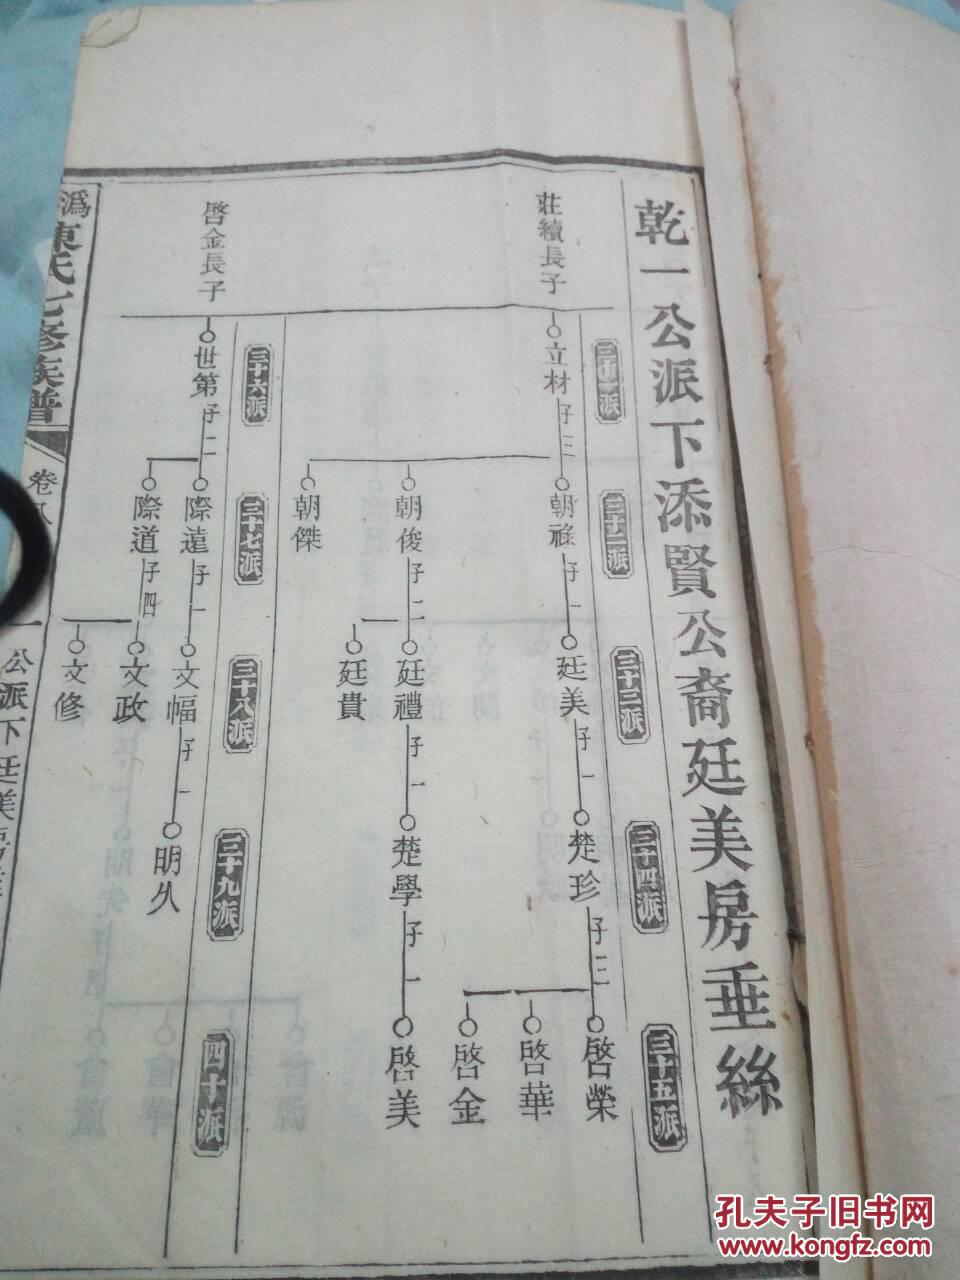 乾一公派下添賢公裔廷美房垂絲
三十一派
三十二派
三十三派
三十四派
三十五派
莊續長子
立材 子三
朝祿 子一
朝俊 子二
朝傑
廷美 子一
廷禮 子一
廷貴
楚珍 子三
楚學 子一
啓榮
啓華
啓金
啓美
三十六派
三十七派
三十八派
三十九派
四十派
啓金長子
世第 子二
際遠 子一
際道 子四
文幅 子一
文政
文修
明久
溈陳氏七修族譜
卷八
一公派下廷美
孔夫子旧书网
www.kongfz.com